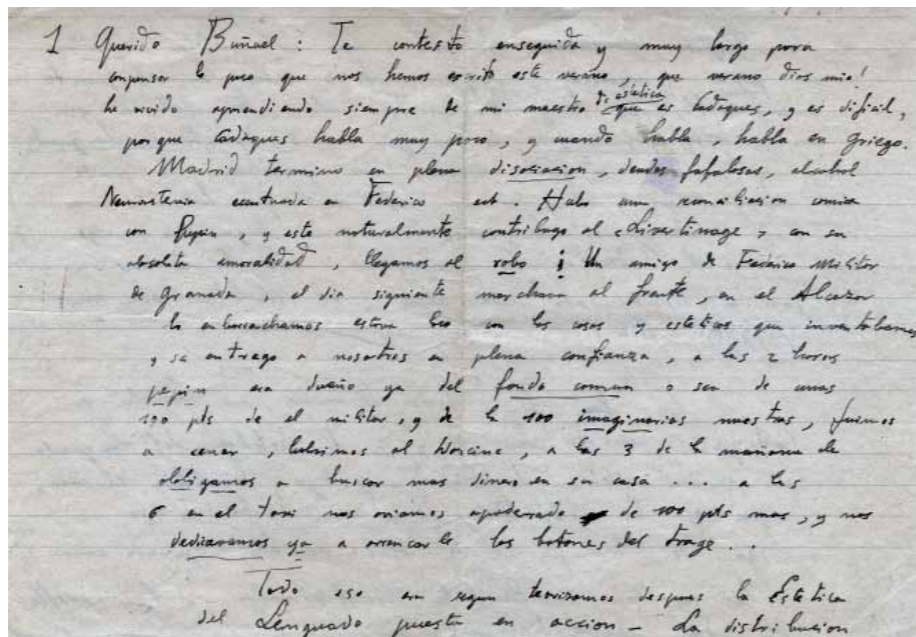 1 Querido Buñuel: Te contesto enseguida y muy largo para
conpensar lo poco que nos hemos escrito este verano, que verano dios mio!
he vivido aprendiendo siempre de mi maestro de estetica que es Cadaques, y es dificil,
porque Cadaques habla muy poco, y cuando habla, habla en griego.
Madrid termino en plena disociacion, deudas fafalosas, alcohol
Neurastenia acentuada en Federico ect. Hubo una reconciliacion comica
con Pepin, y este naturalmente contribuyo al «Livertinage» con su
absoluta amoralidad, llegamos al robo ¡ Un amigo de Federico Militar
de Granada, el dia siguiente marchava al frente, en el Alcazar
lo enborrachamos estava loco con las cosas y esteticas que inventabamos
y se entrego a nosotros en plena confianza, a las 2 horas
pepin era dueño ya del fondo comun o sea de unas
100 pts de el militar, y de la 100 imaginarias nuestras, fuimos
a cenar, bebimos al Horcine, a las 3 de la mañana le
obligamos a buscar mas dinero en su casa ... a las
6 en el taxi nos aviamos apoderado de 100 pts mas, y nos
dedicavamos ya a arrancarle los botones del trage..
Todo eso era segun teorizamos despues la Estetica
del Lenguado puesta en accion – La distribucion